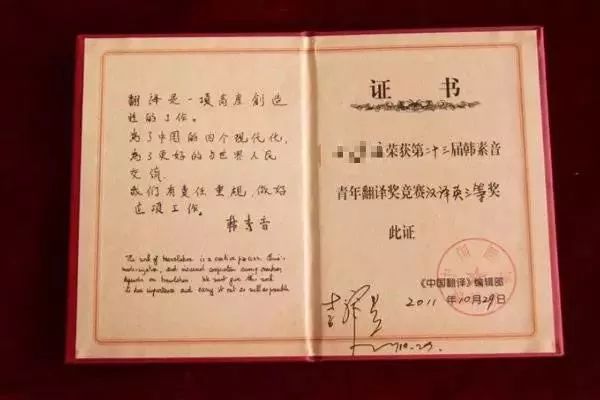 翻譯是一項高度創造
性的工作。
為了中國的四个現代化,
為了更好的与世界人民
交流
我們有責任重視,做好
这項工作。
韩素音
The work of translation is a creative process. China's
modernization, and increased cooperation among countries,
depends on translation. We must give this work
its due importance and carry it out as well as possible
证 书
荣获第二十三届韩素音
青年翻译奖竞赛汉译英三等奖
此证
《中国翻译》编辑部
2011 年 10月29日